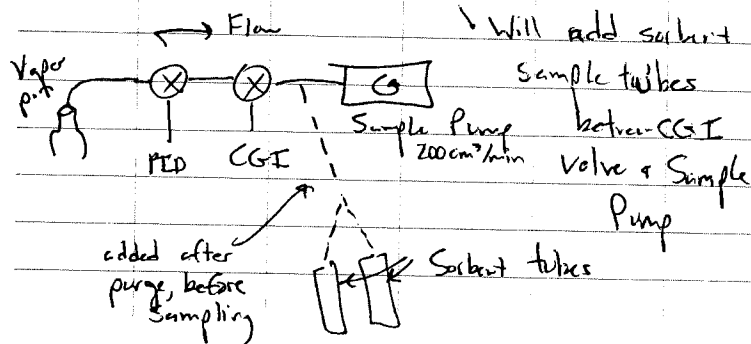 → Flow
Will add sorbent
sample tubes
between CGI
valve & Sample
Pump
Vapor
pt
PID
CGI
Sample Pump
200cm³/min
added after
purge, before
sampling
Sorbent tubes